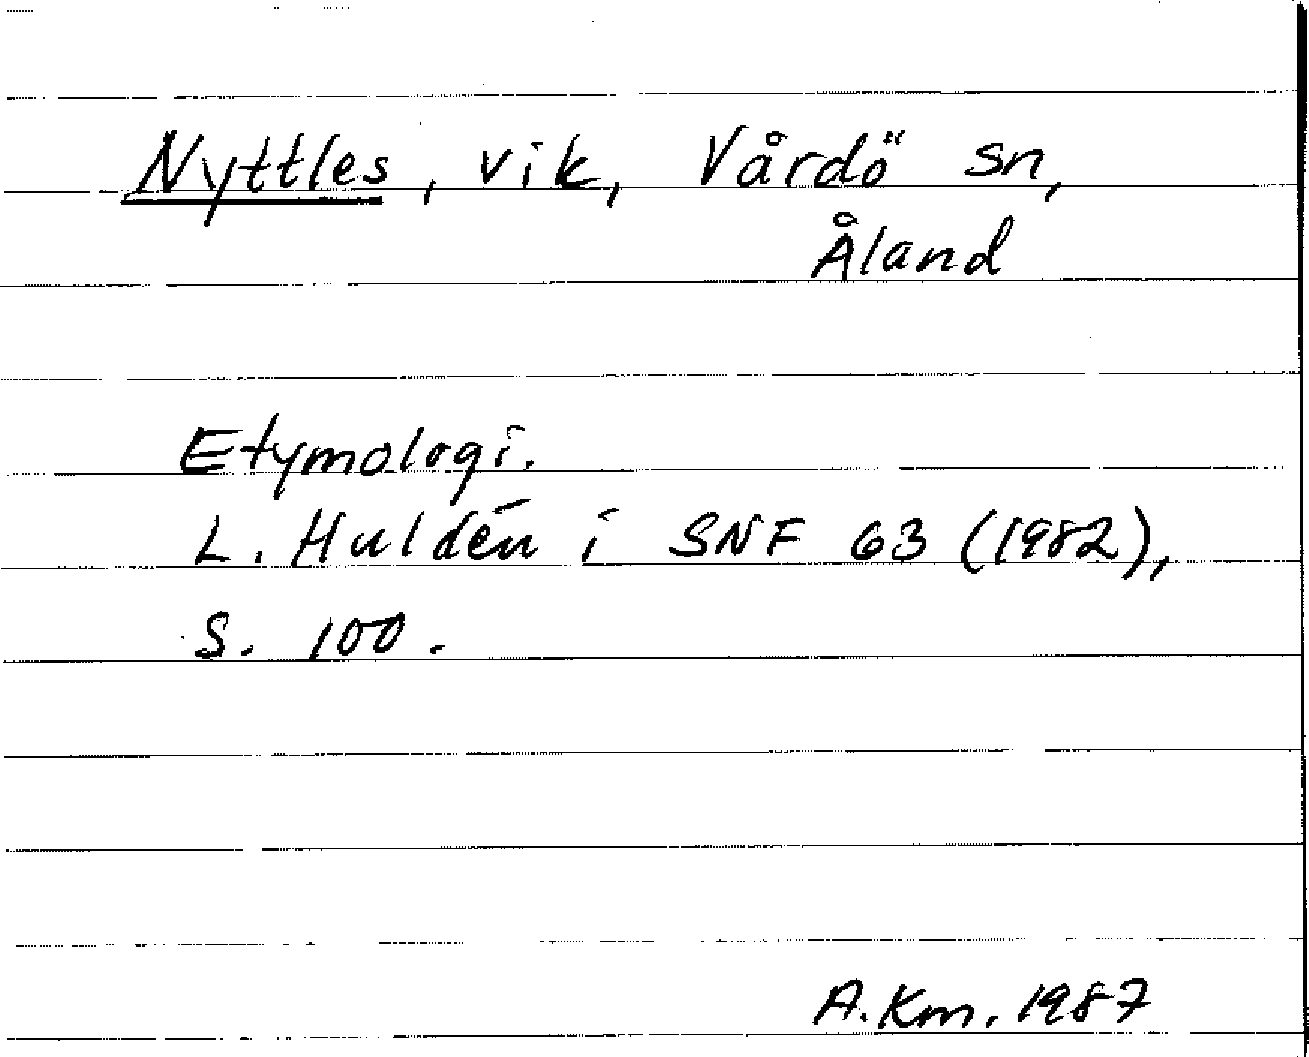 Nyttles, vik, Vårdö sn,
Åland
Etymologi.
L. Huldén i SNF 63 (1982),
S. 100.
A.Km. 1987